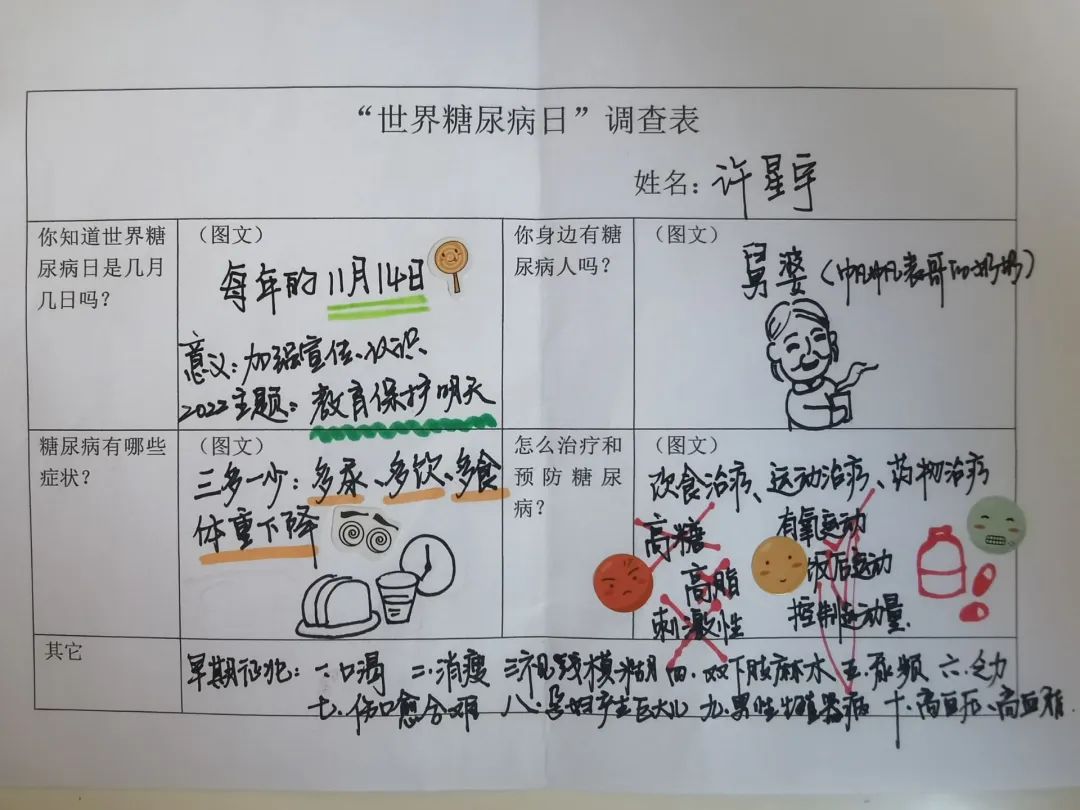 “世界糖尿病日”调查表
姓名：许星宇
你知道世界糖
尿病日是几月
几日吗？
（图文）
每年的11月14日
意义：加强宣传、认识
2022主题：教育保护明天
你身边有糖
尿病人吗？
（图文）
舅婆（帆帆表哥的奶奶）
糖尿病有哪些
症状？
（图文）
三多一少：多尿、多饮、多食
体重下降
怎么治疗和
预防糖尿
病？
（图文）
饮食治疗、运动治疗、药物治疗
高糖
高脂
刺激性
有氧运动
饭后运动
控制运动量.
其它
早期征兆：一.口渴 二.消瘦 三.视线模糊 四.双下肢麻木 五.尿频 六.乏力
七.伤口愈合难 八.孕妇产生巨大儿 九.男性生殖器病 十.高血压、高血脂.